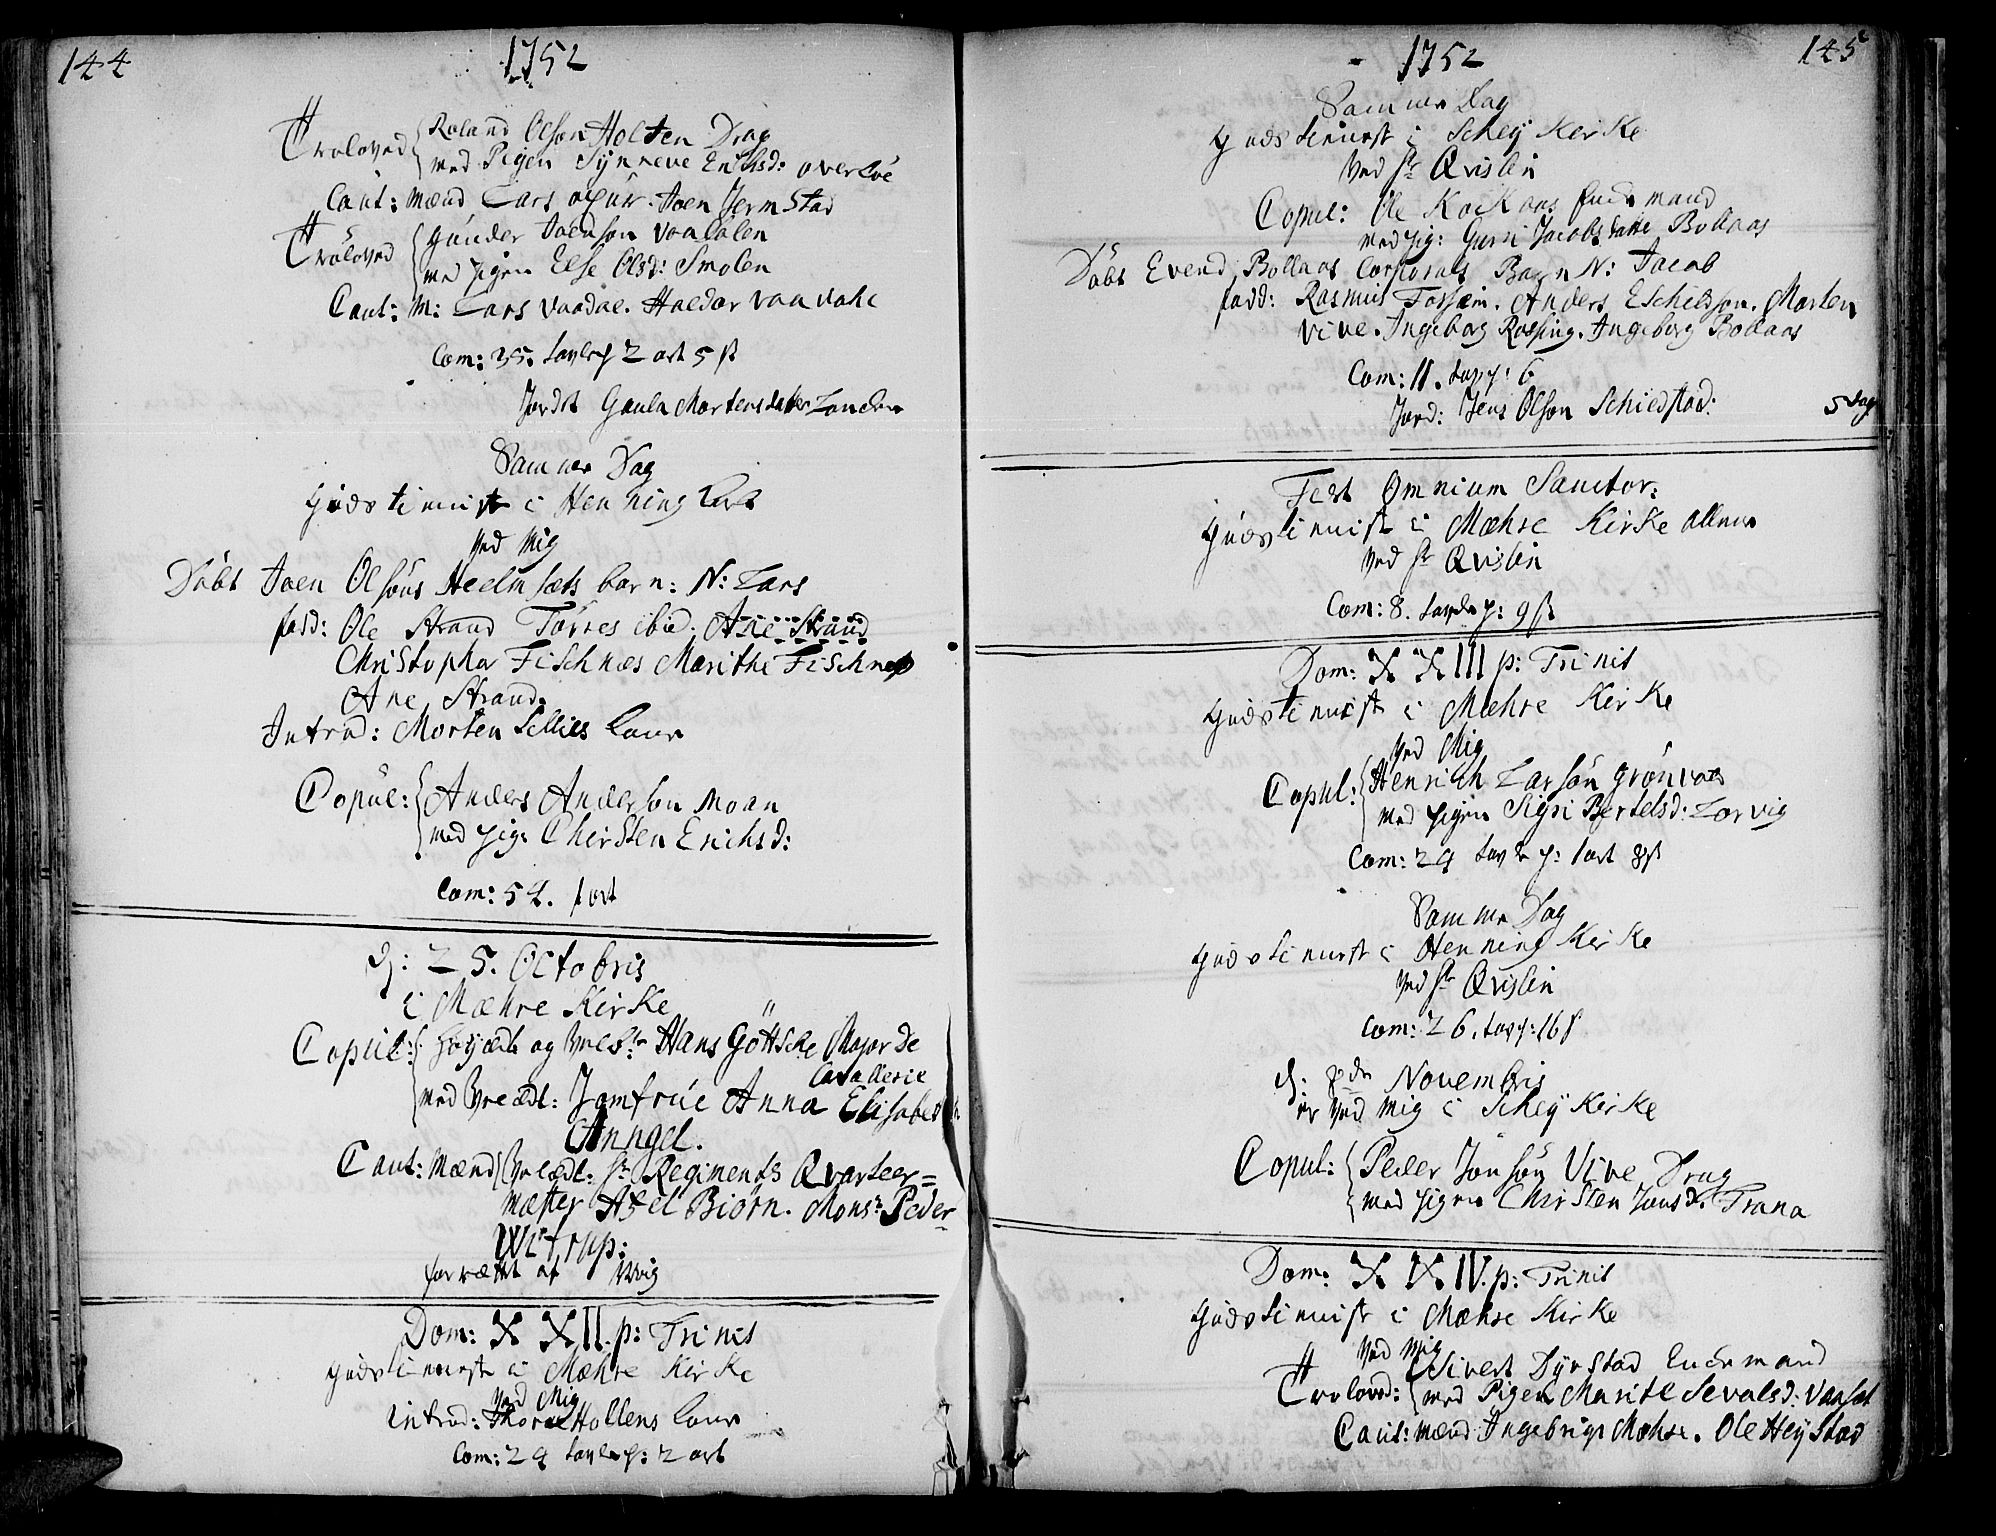 144
1752
Troloved Roland Olson Holten Drag
med Pigen Synneve Erichsd: overlöe
Caut: mænd Lars Joen JermStad
Troloved gunder Joenson vaadalen
med pigen Else Olsd: Smolen
Caut: M: Lars vaadal. Haldor vaavale
Com: 35. tavle p 2 ort 5 ß
Jordet Guula Mortensdatter Landen
Samme Dag
gudstienist i Henning
Ved Mig
Döbt Joen Olsöns Heelmsæts barn: N: Lars
fadd: Ole Strand Törres ibid. Ane Strand
Christopher Fischnæs Marithe Fischnes
Ane Strand.
Introd: Morten Sellies Kone
Copul: Anders Anderson Moan
med pig: Chirsten Erichsd:
Com: 54. 1 ort
d: 25. Octobris
i Mæhre Kirke
Copul: Höyædle og Hans Göttsche Major De
Cavallerie
med Velædl: Jomfrue Anna Elisabeth
Anngel.
Caut: Mænd Velædl: Sr Regiments Qvarteer=
mæster Axel Biörn. Mons:r Peder
Wirup:
forrættet af Mig
Dom: XXII. p: Trinit
gudstienist i Mæhre Kirke
Ved Mig
introd: Hollens kone
Com: 24 tavle p: 2 ort
1752
145
Samme Dag
gudstienist i Schey Kirke
Ved Sr Qvislin
Copul: Ole Kockaas Enckemand
med pig: Guri Jacobsdatter Bollaas
Döbt Evend Bollaas Corporals Barn N: Jacob
fadd: Rasmus Fossem. Anders Eschildson. Morten
Vive. Ingeborg Rossing. Ingeborg Bollaas
Com: 11. tavp: 6
Jord: Jens Olson Schiedstad: 5 dag
Fest Omnium Sanctor:
gudstienist i Mæhre Kirke allene
Ved Sr Qvislin
Com: 8. tavle p: 9 ß
Dom: XXIII p: Trinit
gudstienist i Mæhre Kirke
Ved Mig
Copul: Henrich Larsön grönaas
med pigen Sigri Bertelsd: Lorvig
Com: 24 tavle p: 1 ort 8 ß
Samme Dag
gudstienist i Henning Kirke
Ved Sr Qvislin
Com: 26. tavp: 16 ß
d: 8de Novembris
er Ved Mig i Schey Kirke
Copul: Peder Jonsön Vive Drag
med pigen Chirsten Jonsd. Trana
Dom: XXIV. p: Trinit
gudstienist i Mæhre Kirke
Ved Mig
Troloved: Sivert Dyrstad Enckemand
med Pigen Marite Sevalsd: Vaaset
Caut: mænd Ingebrigt Mæhre. Ole HeyStad